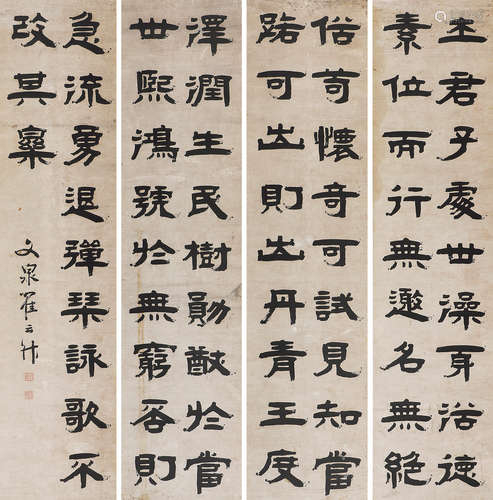 士君子處世澡身浴德
素位而行無邀名無絕
俗苟懷奇可試見知當
路可出則出丹青王度
澤潤生民樹勛猷於當
世熙鴻號於無窮否則
急流勇退彈琴詠歌不
改其樂
文泉翟云升